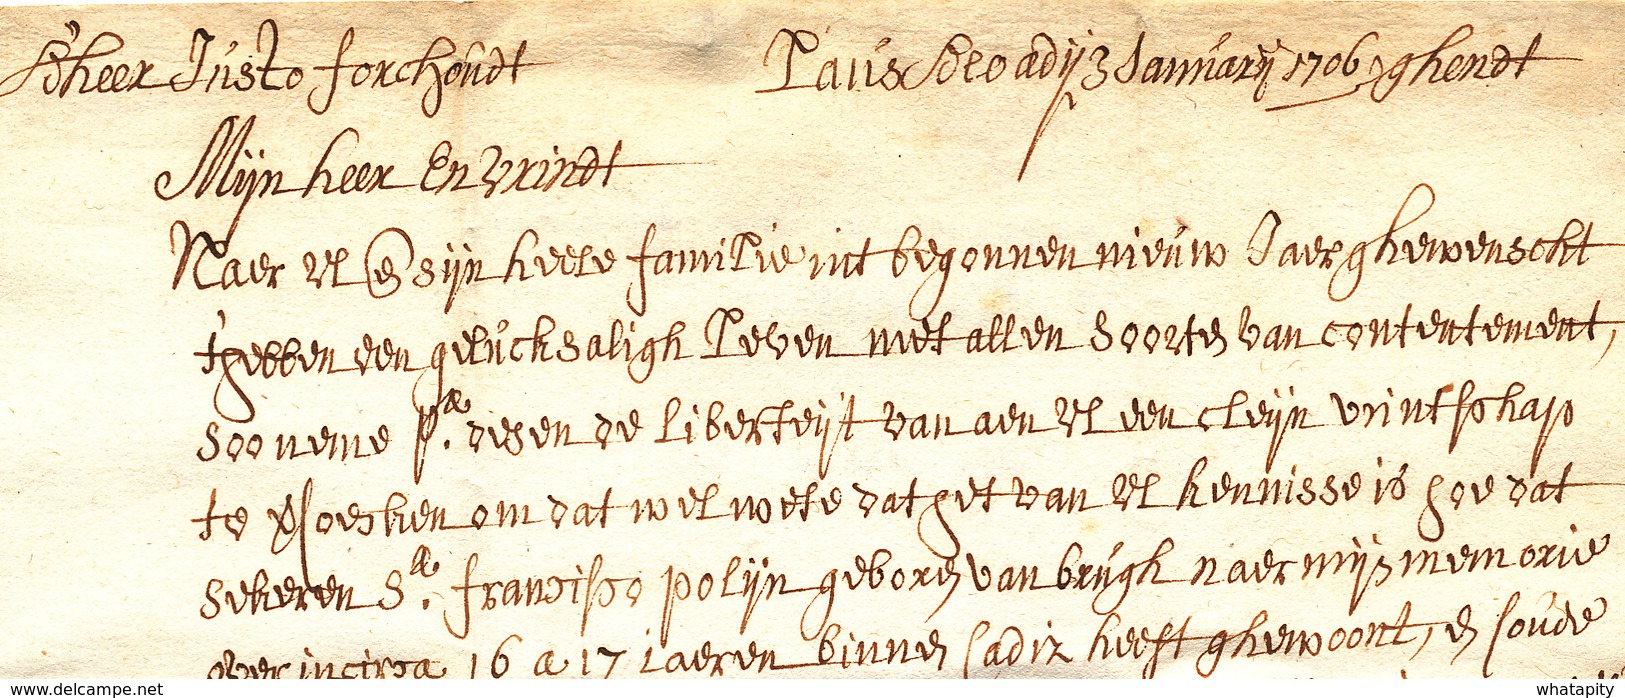 d'heer Justo forchoudt Laus Deo adij 3 Januarij 1706 ghendt
Mijn heer en vrindt
Naer Ul en sijn heele familie int begonnen nieuw Jaer ghewenscht
t'hebben een gelucksaligh leven met allen soorten van contentement,
soo neme pr. desen de liberteijt van aen Ul een cleijn vrintschap
te versoecken om dat wel wete dat het van Ul kennisse is hoe dat
sekeren Sr. fransisco polijn geboren van brugh naer mijn memorie
over incirca 16 a 17 iaeren binnen Cadiz heeft ghewoont, en soude
www.delcampe.net
whatapity